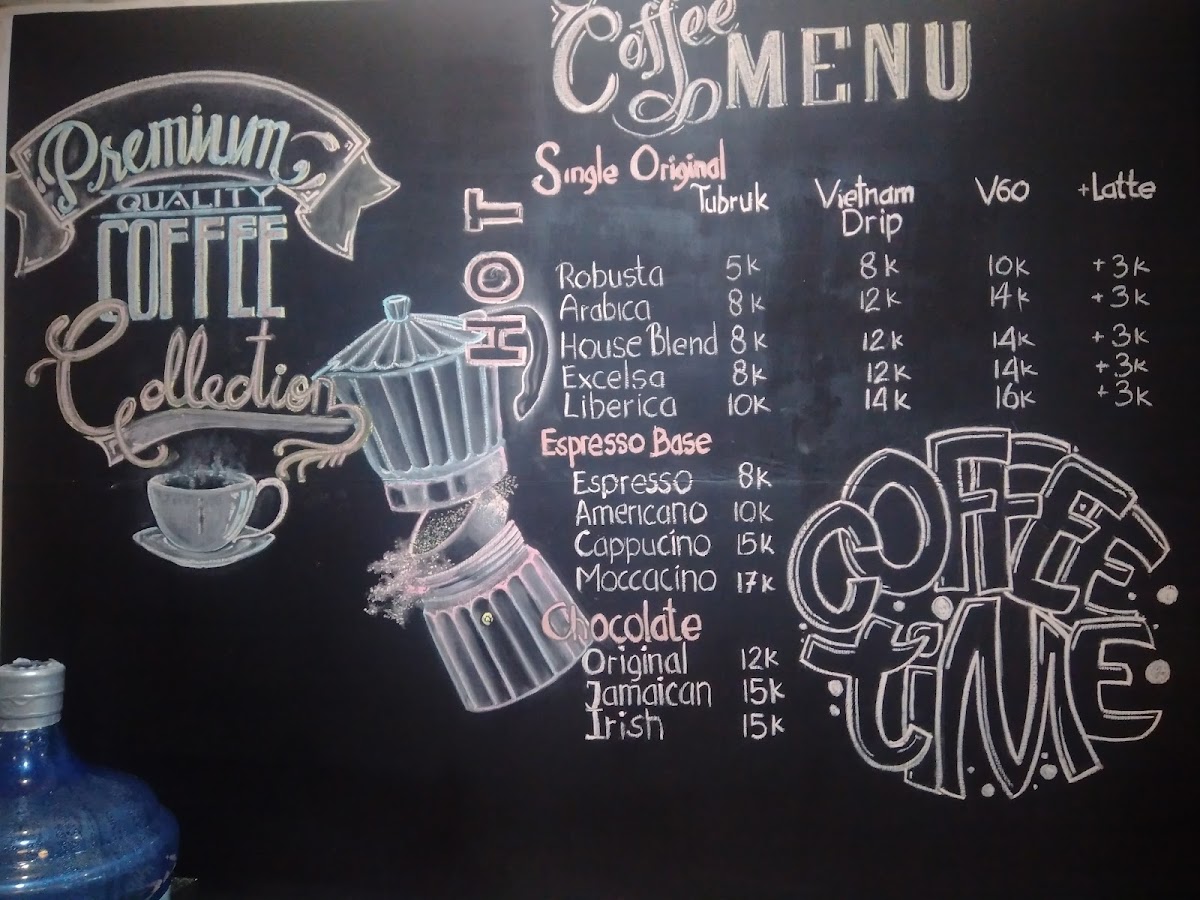 Premium
QUALITY
COFFEE
Collection
Coffee MENU
HOT
Single Original
Tubruk Vietnam Drip V60 +Latte
Robusta 5K 8K 10K +3K
Arabica 8K 12K 14K +3K
House Blend 8K 12K 14K +3K
Excelsa 8K 12K 14K +3K
Liberica 10K 14K 16K +3K
Espresso Base
Espresso 8K
Americano 10K
Cappucino 15K
Moccacino 17K
Chocolate
Original 12K
Jamaican 15K
Irish 15K
COFFEE
TIME